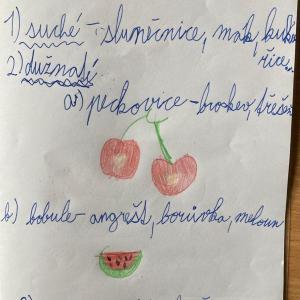 1) suché - slunečnice, mák, kuku
řice
2) dužnaté
a) peckovice - broskev, třeše
b) bobule - angrešt, borůvka, meloun